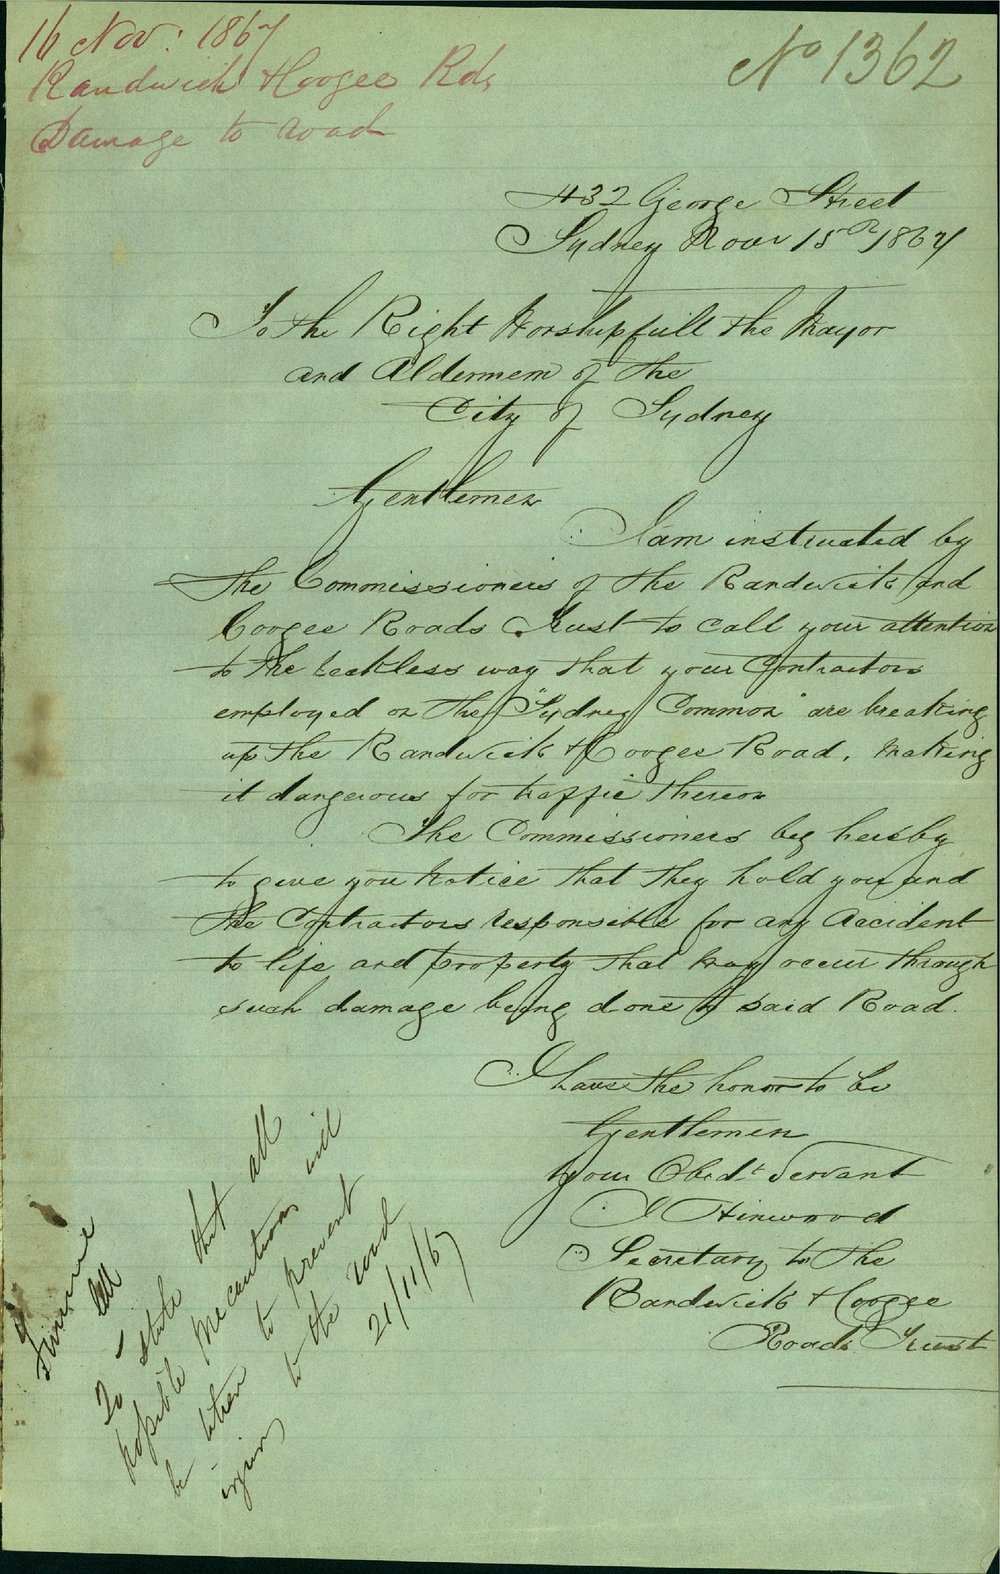 16 Nov: 1867
Randwick & Coogee Rds
Damage to road
No 1362
432 George Street
Sydney Novr 15th 1867
To the Right Worshipfull the Mayor
and Aldermem of the
City of Sydney
Gentlemen
I am instructed by
the Commissioners of the Randwick and
Coogee Roads Trust to call your attention
to the reckless way that your Contractors
employed on the "Sydney Common" are breaking
up the Randwick & Coogee Road, making
it dangerous for traffic thereon
The Commissioners beg hereby
to give you Notice that they hold you and
the Contractors responsible for any Accident
to life and property that may occur through
such damage being done to said Road.
I have the honor to be
Gentlemen
your Obedt Servant
J Hinwood
Secretary to the
Randwick & Coogee
Roads Trust
To state that all
possible precautions will
be taken to prevent
injury to the road
21/11/67